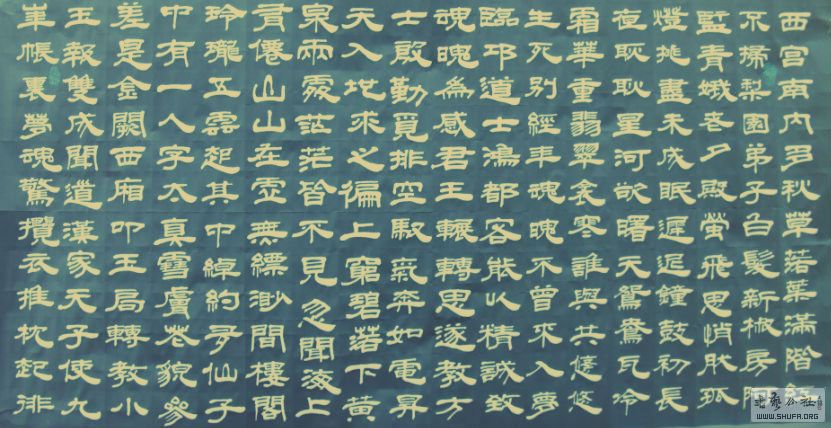 西宫南内多秋草落葉滿階
不掃梨園弟子白髮新椒房
監青娥老夕殿螢飛思悄然孤
燈挑盡未成眠遲遲鐘鼓初長
夜耿耿星河欲曙天鴛鴦瓦冷
霜華重翡翠衾寒誰與共悠悠
生死别經年魂魄不曾來入夢
臨邛道士鴻都客能以精誠致
魂魄為感君王輾轉思遂教方
士殷勤覓排空馭氣奔如電昇
天入地求之徧上窮碧落下黄
泉兩處茫茫皆不見忽聞海上
有僊山山在虛無縹渺間樓閣
玲瓏五雲起其中綽約多仙子
中有一人字太真雪膚花貌參
差是金闕西廂叩玉扃轉教小
玉報雙成聞道漢家天子使九
華帳裏夢魂驚攬衣推枕起徘
WWW.SHUFA.ORG